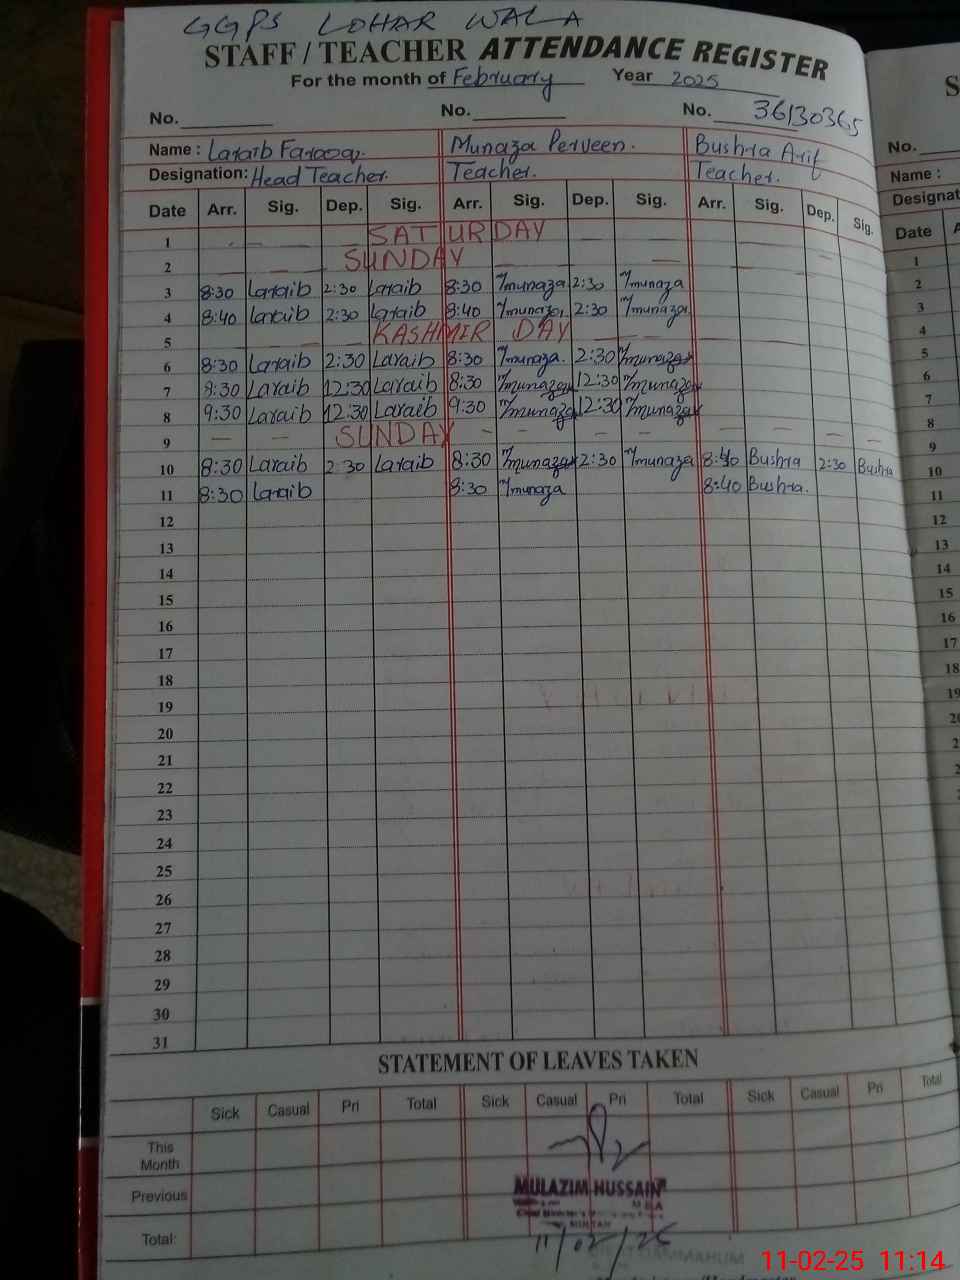 GGPS LOHAR WALA
STAFF / TEACHER ATTENDANCE REGISTER
For the month of February Year 2025
No. No. No. 36130365
Name : Laraib Farooq. Munaza Perveen. Bushra Arif
Designation: Head Teacher. Teacher. Teacher.
Date Arr. Sig. Dep. Sig. Arr. Sig. Dep. Sig. Arr. Sig. Dep. Sig.
1 SATURDAY
2 SUNDAY
3 8:30 Laraib 2:30 Laraib 8:30 munaza 2:30 munaza
4 8:40 Laraib 2:30 Laraib 8:40 munaza 2:30 munaza
5 KASHMIR DAY
6 8:30 Laraib 2:30 Laraib 8:30 munaza. 2:30 munaza
7 8:30 Laraib 12:30 Laraib 8:30 munaza 12:30 munaza
8 9:30 Laraib 12:30 Laraib 9:30 munaza 12:30 munaza
9 SUNDAY
10 8:30 Laraib 2:30 Laraib 8:30 munaza 2:30 munaza 8:40 Bushra 2:30 Bushra
11 8:30 Laraib 8:30 munaza 8:40 Bushra.
12
13
14
15
16
17
18
19
20
21
22
23
24
25
26
27
28
29
30
31
STATEMENT OF LEAVES TAKEN
Sick Casual Pri Total Sick Casual Pri Total Sick Casual Pri Total
This
Month
Previous
Total:
MULAZIM HUSSAIN
11/02/25
No.
Name :
Designat
Date A
1
2
3
4
5
6
7
8
9
10
11
12
13
14
15
16
17
18
19
11-02-25 11:14